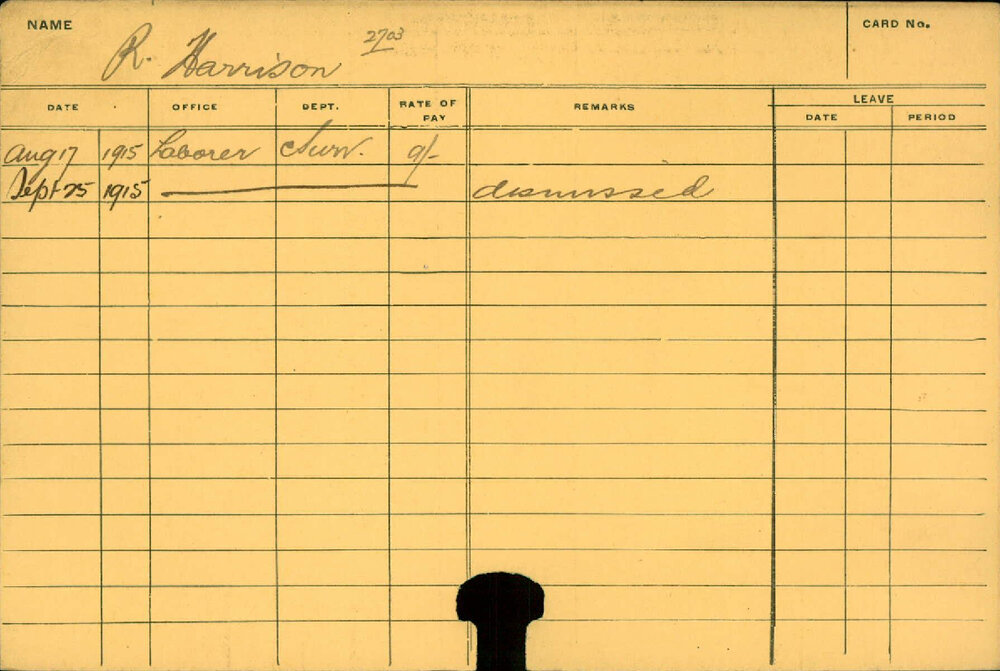 NAME
CARD No.
R. Harrison 2703
DATE OFFICE DEPT. RATE OF PAY REMARKS LEAVE
DATE PERIOD
Aug 17 1915 Laborer 9/-
Sept 25 1915 dismissed